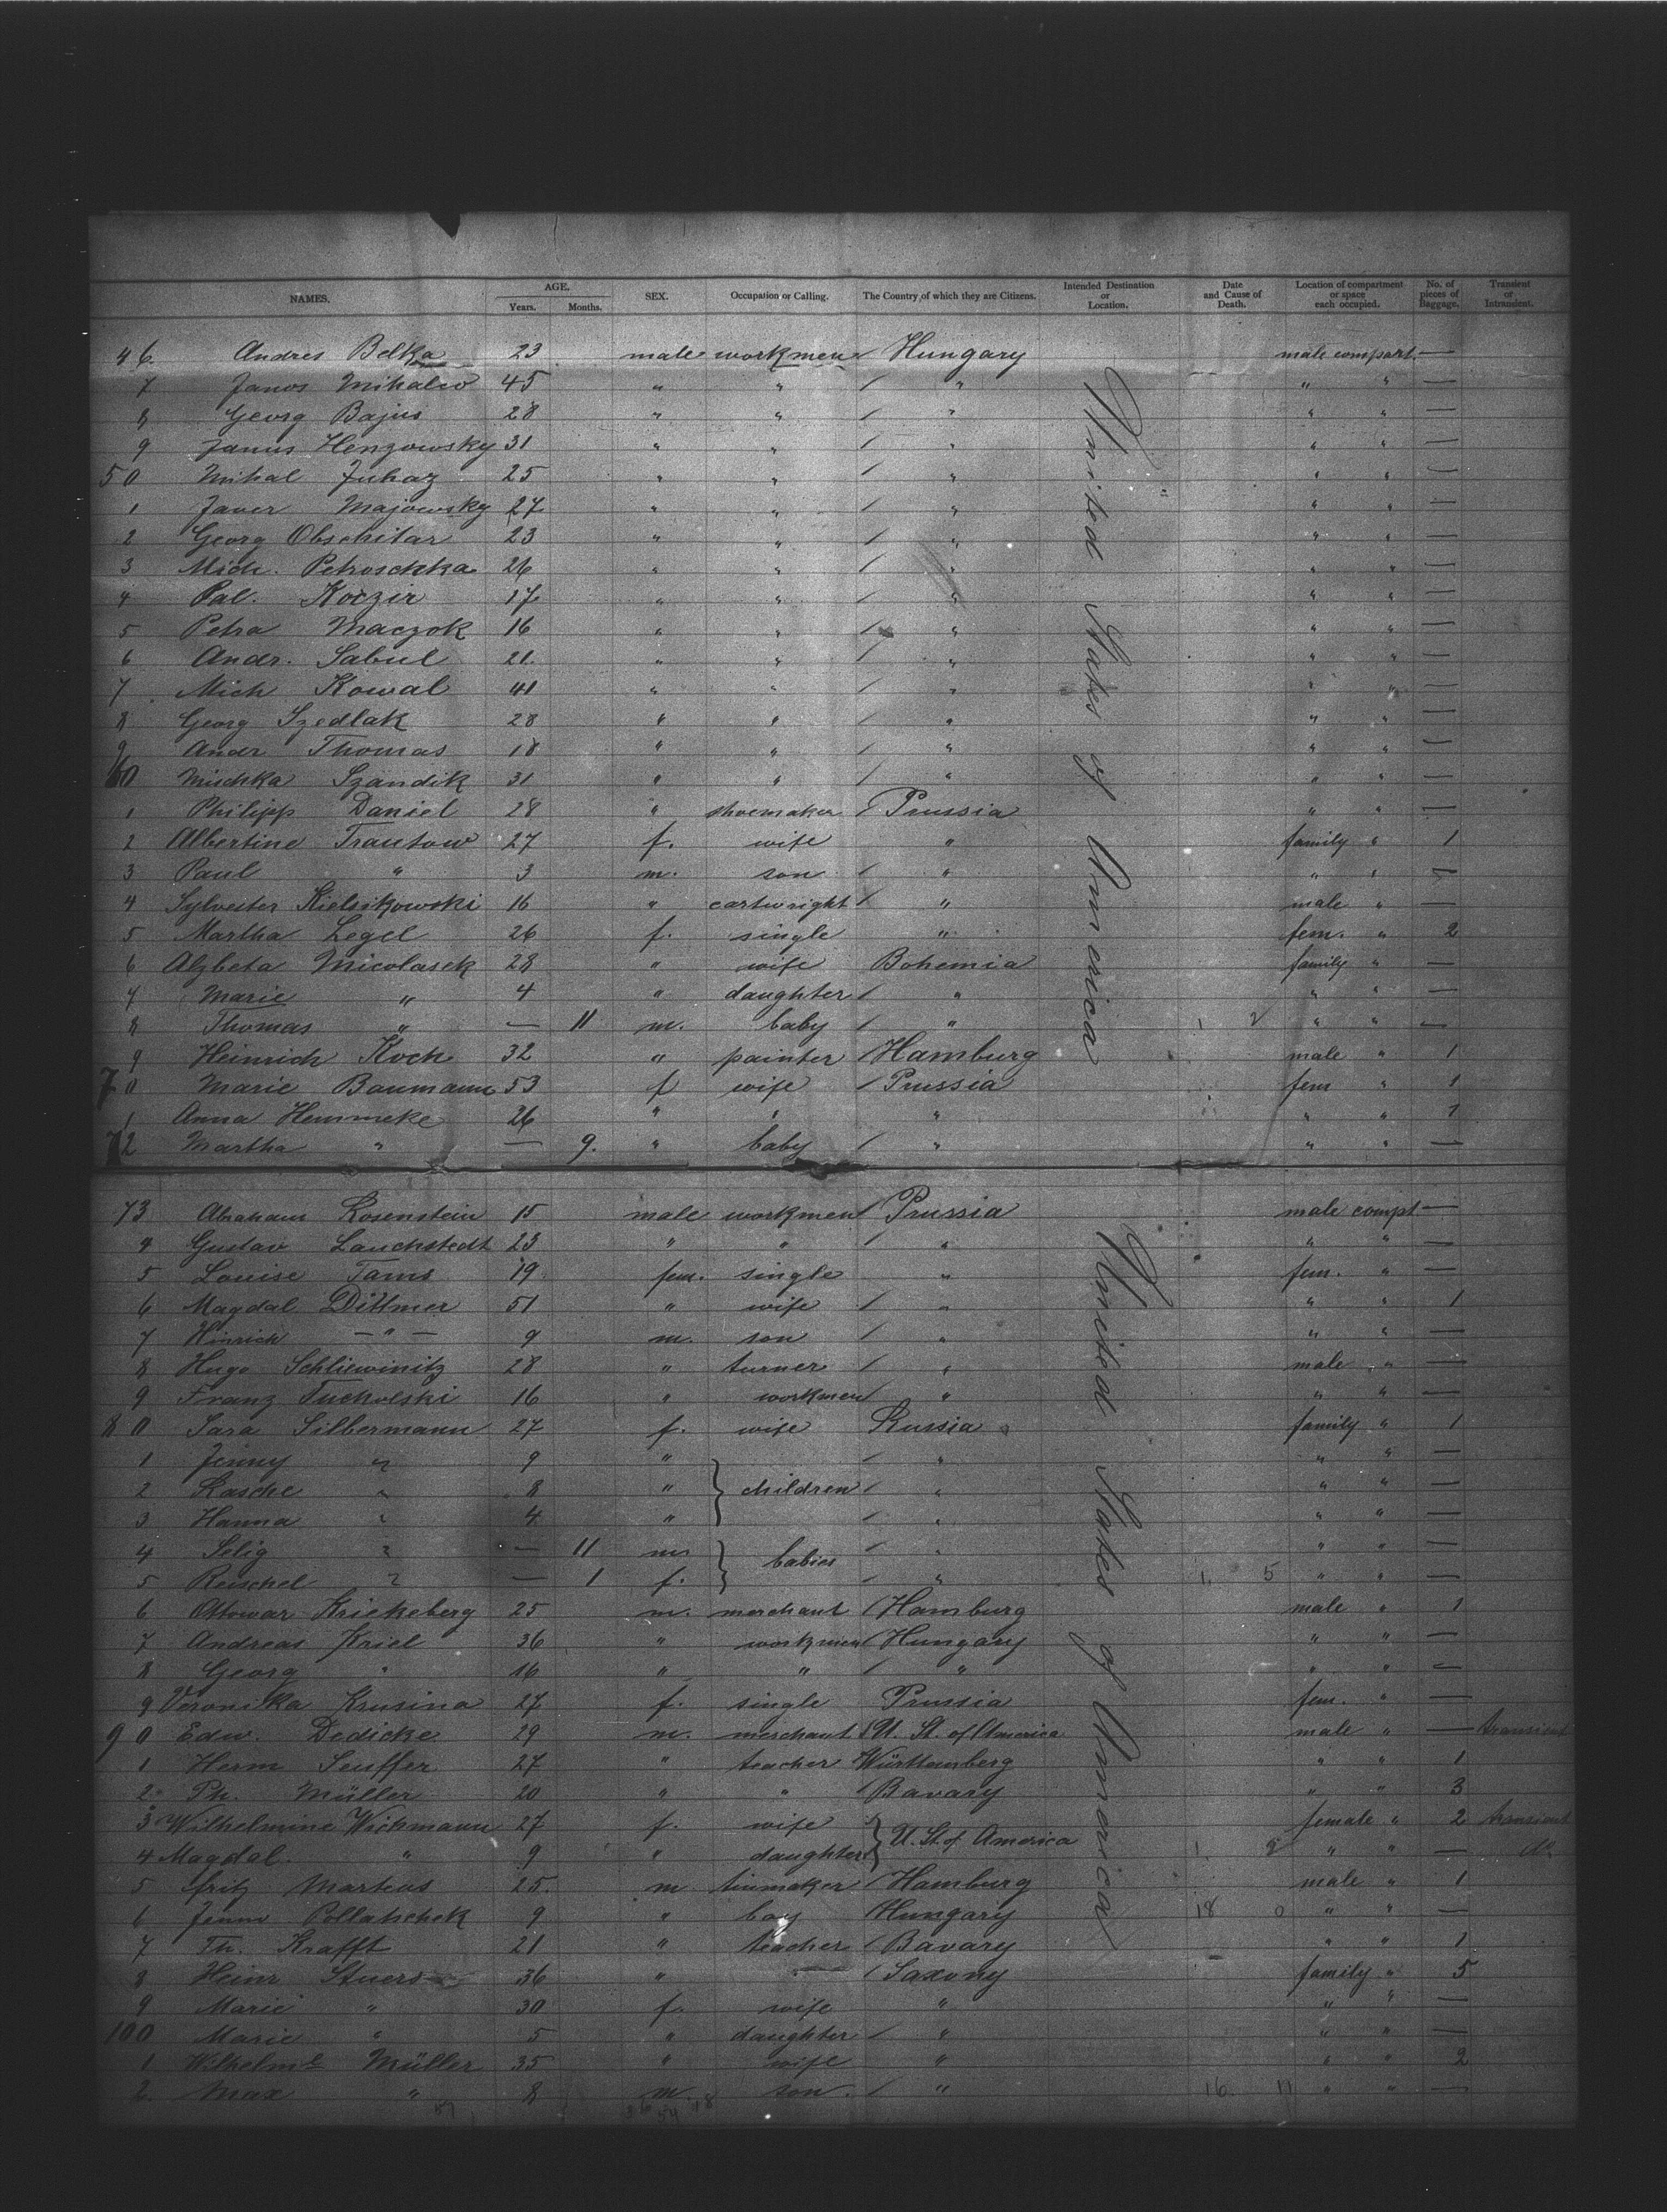 NAMES. AGE. Years. Months. SEX. Occupation or Calling. The Country of which they are Citizens. Intended Destination or Location. Date and Cause of Death. Location of compartment or space each occupied. No. of pieces of Baggage. Transient or Intransient.
46. Andres Belka 23 male workmen Hungary male compart. —
7 Janos Mihalco 45 " " / " " " —
8 Georg Bajus 28 " " / " " " —
9 Janus Henzowsky 31 " " / " " " —
50 Mihal Juhaz 25 " " / " " " —
1 Janer Majowsky 27 " " / " " " —
2 Georg Obschitar 23 " " / " " " —
3 Mich. Petroschka 26 " " / " " " —
4 Pal. Koczir 17 " " / " " " —
5 Petra Maczok 16 " " / " " " —
6 Andr. Sabul 21. " " / " " " —
7 Mich Kowal 41 " " / " " " —
8 Georg Szedlak 28 " " / " " " —
9 Andr Thomas 18 " " / " " " —
60 Mischka Szandik 31 " " / " " " —
1 Philipp Daniel 28 " shoemaker / Prussia " " —
2 Albertine Trautow 27 f. wife " family " 1
3 Paul " 3 m. son / " " " —
4 Sylvester Kielsikowski 16 " cartwright / " male " —
5 Martha Legel 26 f. single " fem. " 2
6 Alzbeta Micolasek 28 " wife Bohemia family " —
7 Marie " 4 " daughter / " " " —
8 Thomas " — 11 m. baby / " 1 2 " " —
9 Heinrich Koch 32 " painter / Hamburg male " 1
70 Marie Baumann 53 f wife / Prussia fem " 1
1 Anna Hemmeke 26 " " " " " 1
72 Martha " — 9. " baby / " " " —
United States of America
73 Abraham Rosenstein 15 male workmen / Prussia male compt —
4 Gustav Lauchstedt 23 " " / " " " —
5 Louise Tams 19 fem. single " fem. " —
6 Magdal Dittmer 51 " wife / " " " 1
7 Hinrich — " — 9 m. son / " " " —
8 Hugo Schliewinitz 28 " turner / " male " —
9 Franz Tucholski 16 " workmen / " " " —
80 Sara Silbermann 27 f. wife Russia family " 1
1 Jenny " 9 " / " " " —
2 Rasche " 8 " children / " " " —
3 Hanna " 4 " / " " " —
4 Selig " — 11 m / " " " —
babies
5 Reischel " — 1 f. / " 1. 5 " " —
6 Ottowar Krickeberg 25 m. merchant / Hamburg male " 1
7 Andreas Kriel 36 " workmen / Hungary " " —
8 Georg " 16 " " / " " " —
9 Veronika Krusina 27 f. single Prussia fem. " —
90 Edw. Dedicke 29 m. merchant / U. St. of America male " — transient
1 Herm Seuffer 27 " teacher Württemberg " " 1
2 Ph. Müller 20 " " / Bavary " " 3
3 Wilhelmine Wichmann 27 f. wife female " 2 transient
U. St. of America
4 Magdal. " 9 " daughter 1 " " — do
5 Fritz Martens 25. m tinmaker / Hamburg male " 1
6 Pollatschek 9 " boy / Hungary 18 0 " " —
7 Th. Krafft 21 " teacher / Bavary " " 1
8 Heinr Stuers 36 " — / Saxony family " 5
9 Marie " 30 f. wife " " " —
100 Marie " 5 " daughter / " " " —
1 Wilhelme Müller 35 " wife " " " 2
2 Max " 8 m. son. / " 16. 11 " " —
United States of America